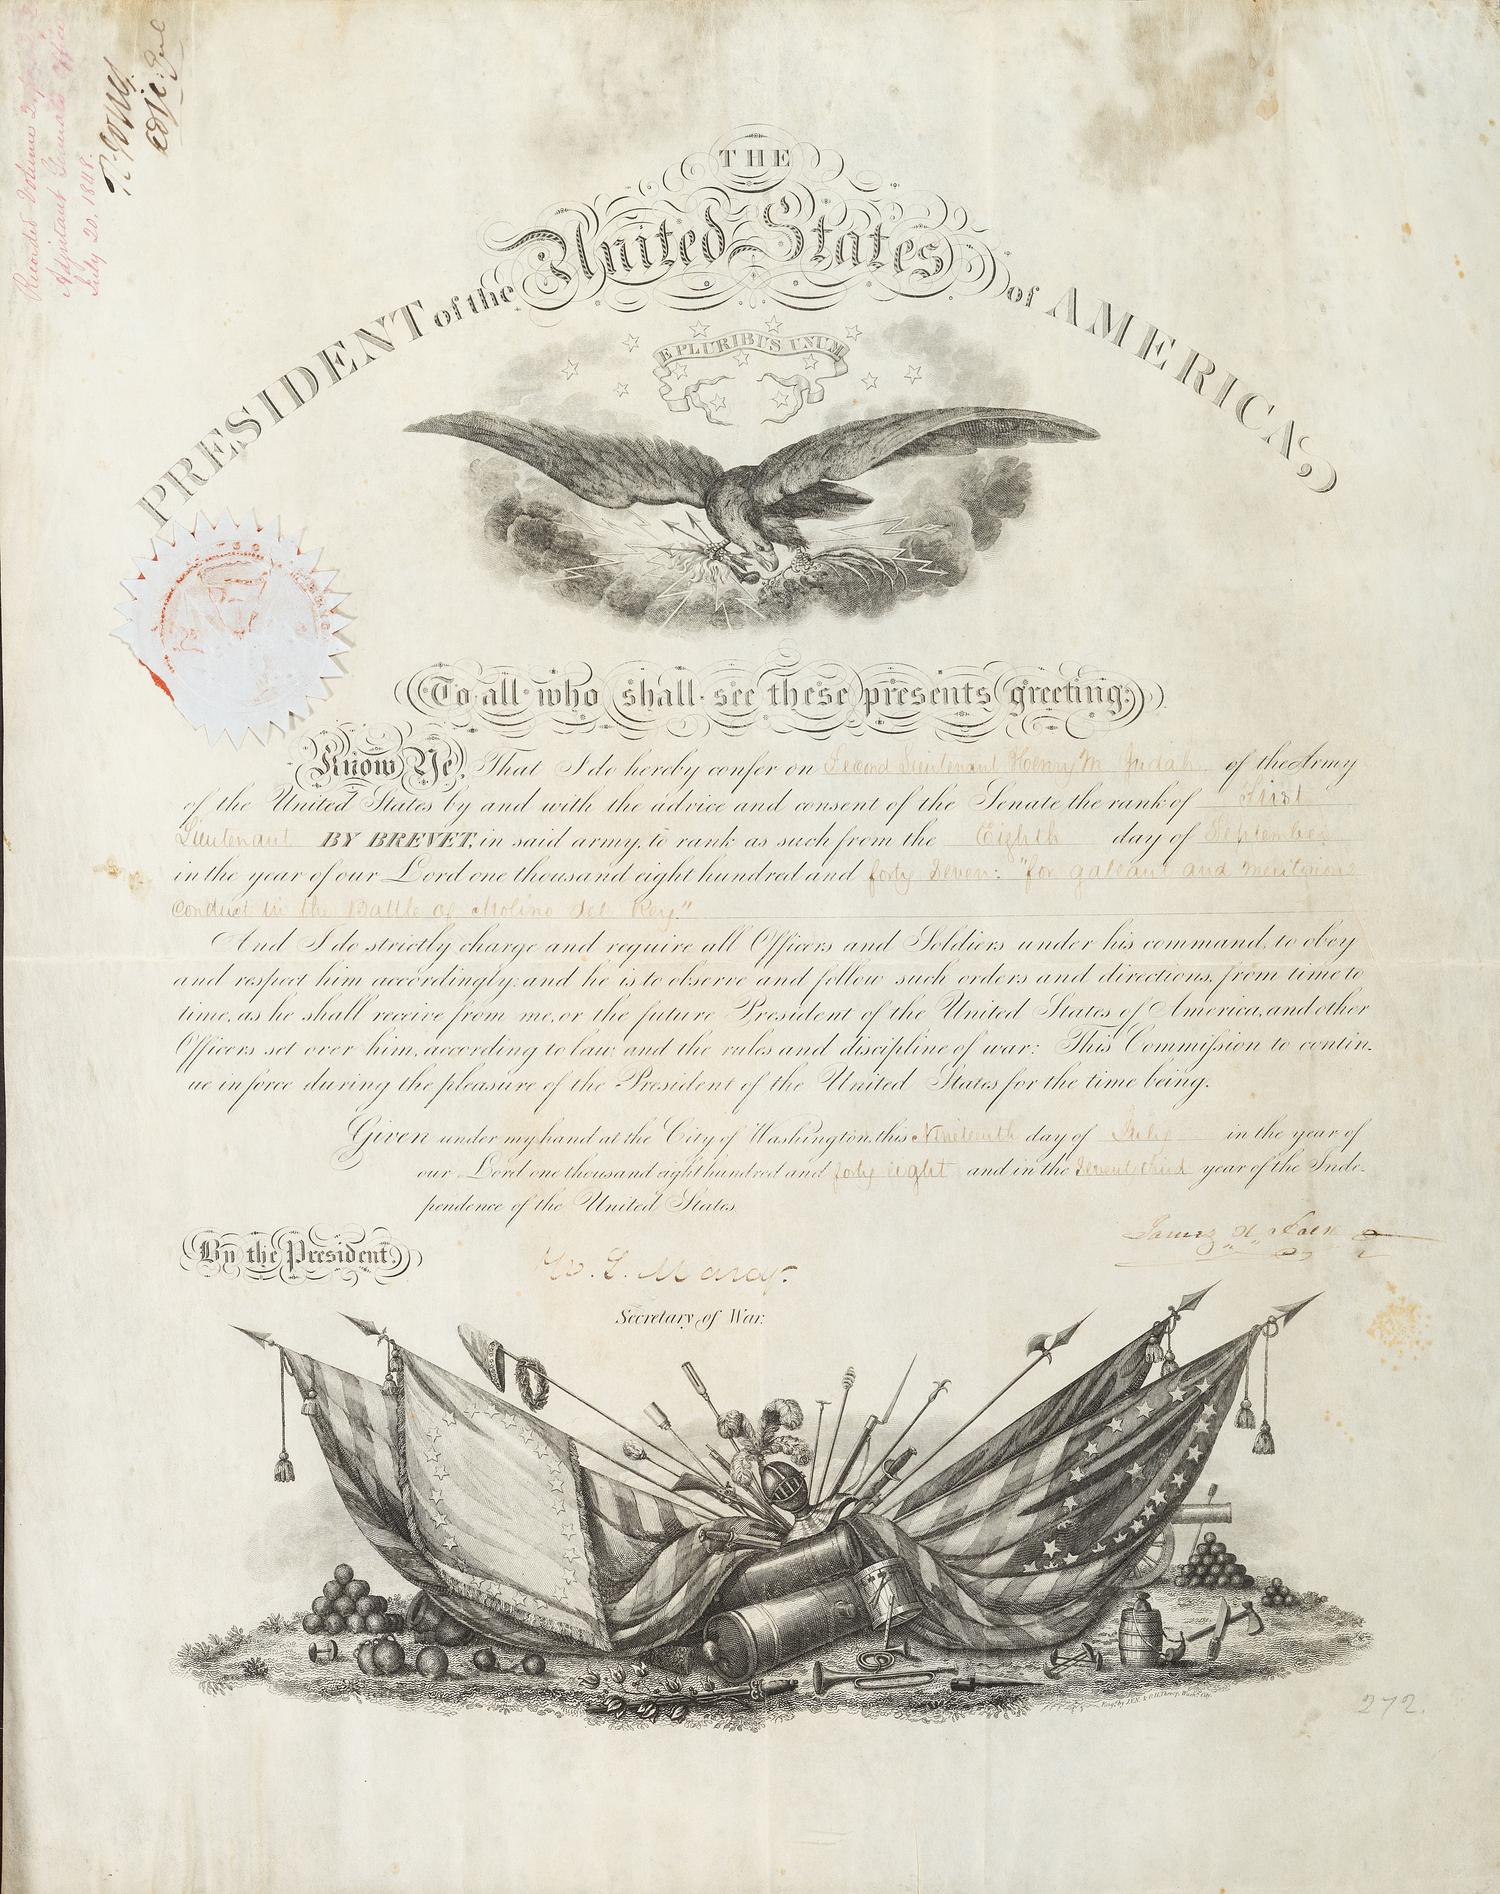 Recorded Volume
Adjutant Generals Office
July 20. 1848.
THE
United States
PRESIDENT of the
of AMERICA,
E PLURIBUS UNUM
To all who shall see these presents greeting:
Know Ye, That I do hereby confer on Second Lieutenant Henry M. Judah of the Army
of the United States by and with the advice and consent of the Senate the rank of First
Lieutenant BY BREVET, in said army, to rank as such from the Eighth day of September
in the year of our Lord one thousand eight hundred and forty seven: "for gallant and meritorious
conduct in the Battle of Molino del Rey."
And I do strictly charge and require all Officers and Soldiers under his command, to obey
and respect him accordingly: and he is to observe and follow such orders and directions, from time to
time, as he shall receive from me, or the future President of the United States of America, and other
Officers set over him, according to law, and the rules and discipline of war: This Commission to contin-
ue in force during the pleasure of the President of the United States for the time being.
Given under my hand at the City of Washington, this Nineteenth day of July in the year of
our Lord one thousand eight hundred and forty eight and in the Seventy third year of the Inde-
pendence of the United States.
By the President,
James K. Polk
W. L. Marcy.
Secretary of War.
272.